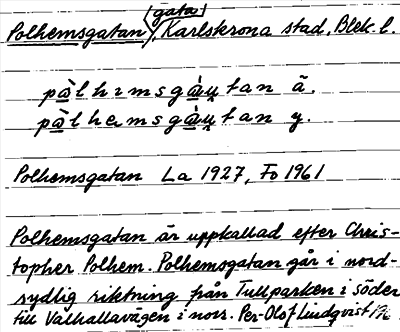 Polhemsgatan (gata), Karlskrona stad, Blek. l.
pålhımsgåụtan ä.
pålhemsgåụtan y.
Polhemsgatan La 1927, Fo 1961
Polhemsgatan är uppkallad efter Chris-
topher Polhem. Polhemsgatan går i nord-
sydlig riktning från Tullparken i söder
till Valhallavägen i norr. Per-Olof Lindqvist